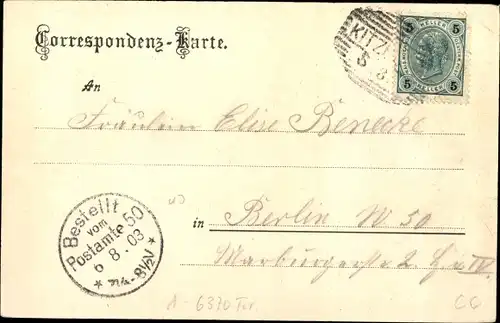 Correspondenz-Karte.
KITZ
5 8
5 5
HELLER
5 HELLER 5
An
Fräulein Elise Benecke
Bestellt
vom
Postamte 50
6 8. 03
* 7¼-8½V *
in Berlin W 50
Marburgerstr 2 IV
A-6370
CG